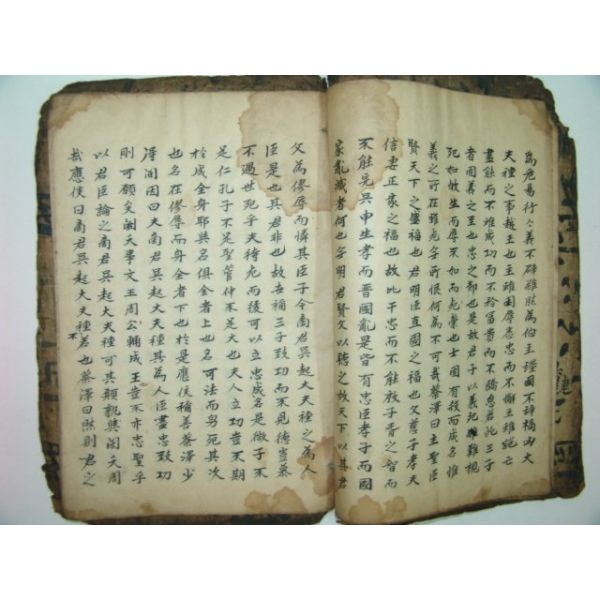 為危易行〻義不辟難然為伯主强國不辞禍凶大
夫種之事越王也主雖困辱悉忠而不懈主雖絶亡
盡能而不难成功而不矜富貴而不驕怠若此三子
者固義之至也忠之節也是故君子以義死難視
死如故生而辱不如死而榮也士固有殺而成名惟
義之所在雖死無所恨何為不可哉蔡澤曰主聖臣
賢天下之盛福也君明臣直國之福也父慈子孝夫
信妻正家之福也故比干忠而不能救子胥之智而
不能完吳申生孝而晉國亂是皆有忠臣孝子而國
家亂滅者何也無明君賢父以聽之故天下以其君
父為僇辱而憐其臣子今商君吳起大夫種之為人
臣是也其君非也故吉稱三子致功而不見德豈慕
不遇世死乎夫待死而後可以立忠成名是微子不
足仁孔子不足聖管仲不足大也夫人立功豈不期
於成全身耶與名俱全者上也名可法而身死其次
也名在僇辱而身全者下也於是應侯稱善蔡澤少
得间因曰夫商君吳起大夫種其為人臣盡忠致功
則可願矣閎夭事文王周公輔成王豈不亦忠聖乎
以君臣論之商君吳起大夫種可其願孰與閎夭周
公哉應侯曰商君吳起大夫種不若也蔡澤曰然則君之